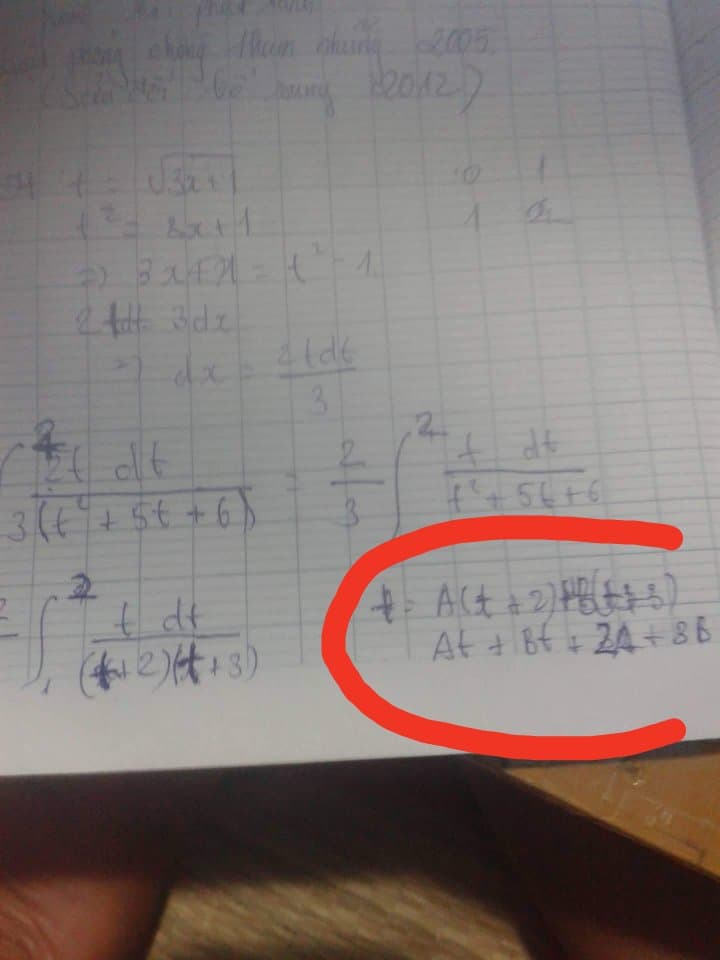 phòng chống tham nhũng 2005
(sửa đổi bổ sung 2012)
t = √3x+1 0 1
t² = 3x+1 1 2
=> 3x = t² - 1
2tdt = 3dx
=> dx = 2tdt / 3
∫ 2 2t dt / 3(t² + 5t + 6) = 2/3 ∫ 2 t dt / t² + 5t + 6
∫ 1 2 t dt / (t+2)(t+3)
t = A(t+2) + B(t+3)
At + Bt + 2A + 3B